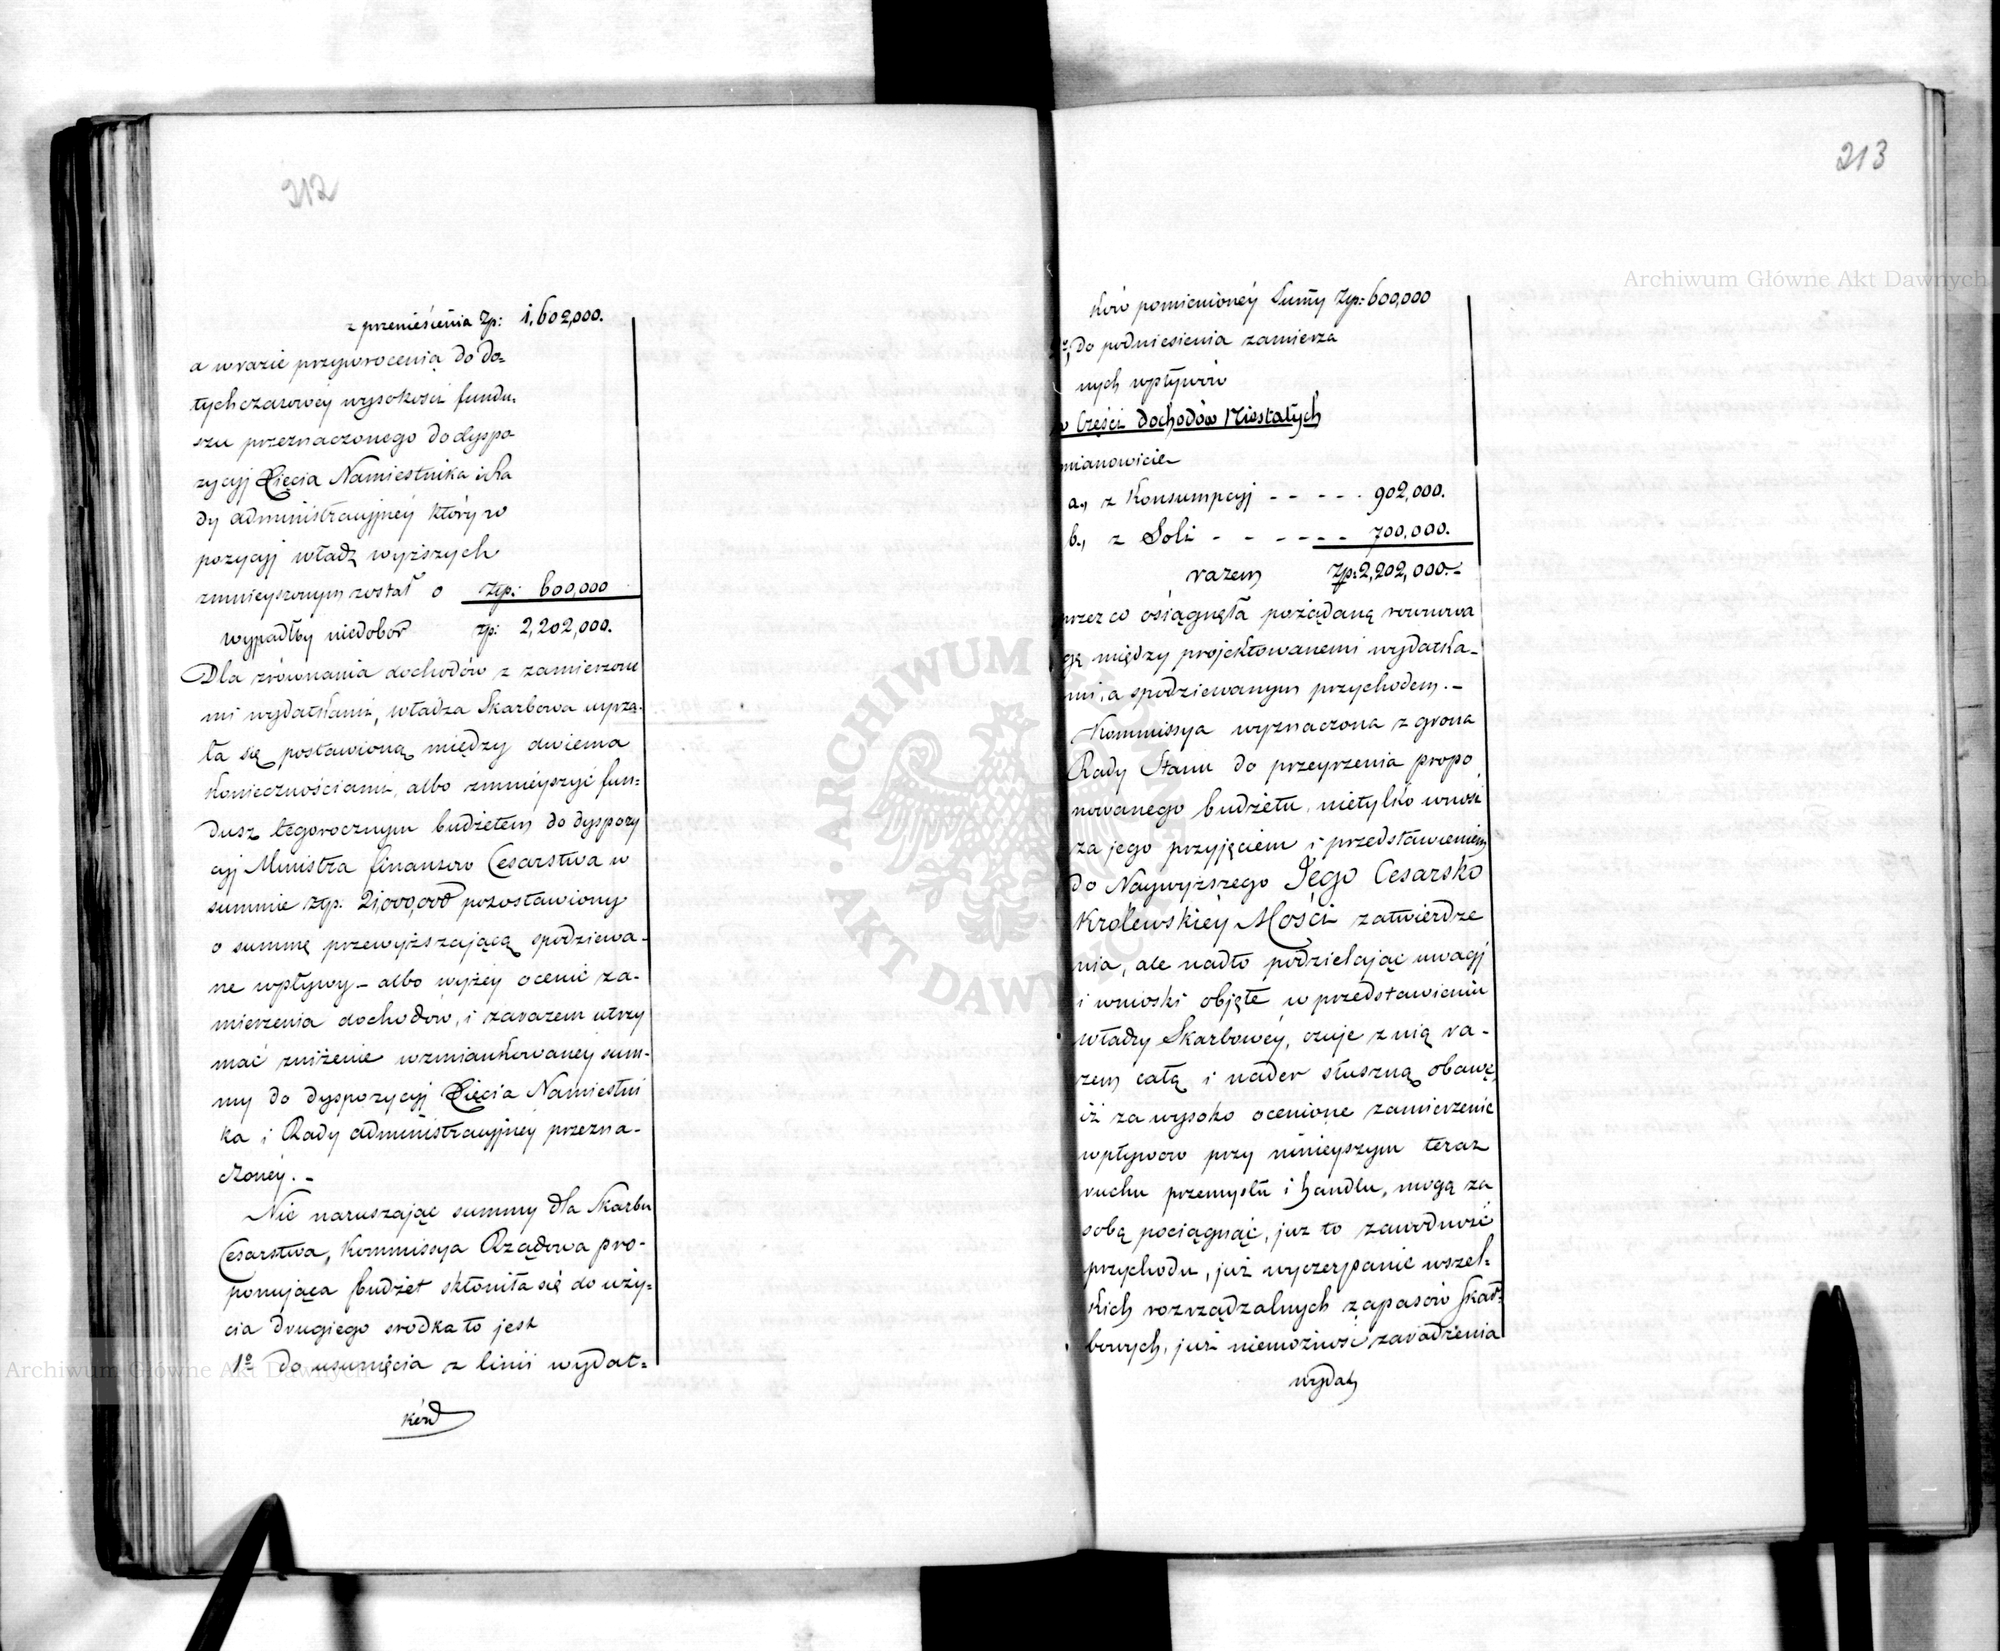 212
z przeniesienia Zp: 1,602,000.
a w razie przywrocenia do do-
tychczasowey wysokości fundu-
szu przeznaczonego do dyspo
zycyj Xięcia Namiestnika i Ra
dy administracyjney który w
pozycyj władz wyższych
zmnieyszonym został o Zp: 600,000
wypadłby niedobór Zp: 2,202,000.
Dla zrównania dochodów z zamierzone
mi wydatkami, władza Skarbowa uyrza-
ła się postawioną między dwiema
koniecznościami, albo zmnieyszyć fun-
dusz tegorocznym budżetem do dyspozy
cyj Ministra finansow Cesarstwa w
summie Złp: 21,000,000 pozostawiony
o summę przewyższającą spodziewa-
ne wpływy – albo wyżey ocenić za-
mierzenia dochodów, i zarazem utrzy
mać zniżenie wzmiankowaney sum-
my do dyspozycyj Xięcia Namiestni
ka i Rady administracyjney przezna-
czoney. –
Nie naruszając summy dla Skarbu
Cesarstwa, Kommissya Rządowa pro-
ponująca budżet skłoniła się do uży-
cia drugiego srodka to jest
1º do usunięcia z linii wydat-
ków
213
ków pomienioney Summy Zp: 600,000
do podniesienia zamierza
nych wpływów
w Części dochodów Niestałych
mianowicie
a., z Konsumpcyj - - - - - 902,000.
b., z Soli - - - - - - 700,000.
razem Zp: 2,202,000. –
przez co osiągnęła pożądaną rownowa
gę między projektowanemi wydatka-
mi, a spodziewanym przychodem. –
Kommissya wyznaczona z grona
Rady Stanu do przeyrzenia propo
nowanego budżetu, nietylko wnosi
za jego przyjęciem i przedstawieniem
do Naywyższego Jego Cesarsko
Królewskiéy Mości zatwierdze
nia, ale nadto podzielając uwagi
i wnioski objęte w przedstawieniu
władzy Skarbowey, czuje z nią ra-
zem całą i nader słuszną obawę,
iż za wysoko ocenione zamierzenie
wpływow przy mnieyszym teraz
ruchu przemysłu i handlu, mogą za
sobą pociągnąć, już to zawodność
przychodu, już wyczerpanie wszel-
kich rozrządzalnych zapasów skar-
bowych, już niemożność zaradzenia
wydat
Archiwum Główne Akt Dawnych
Archiwum Główne Akt Dawnych